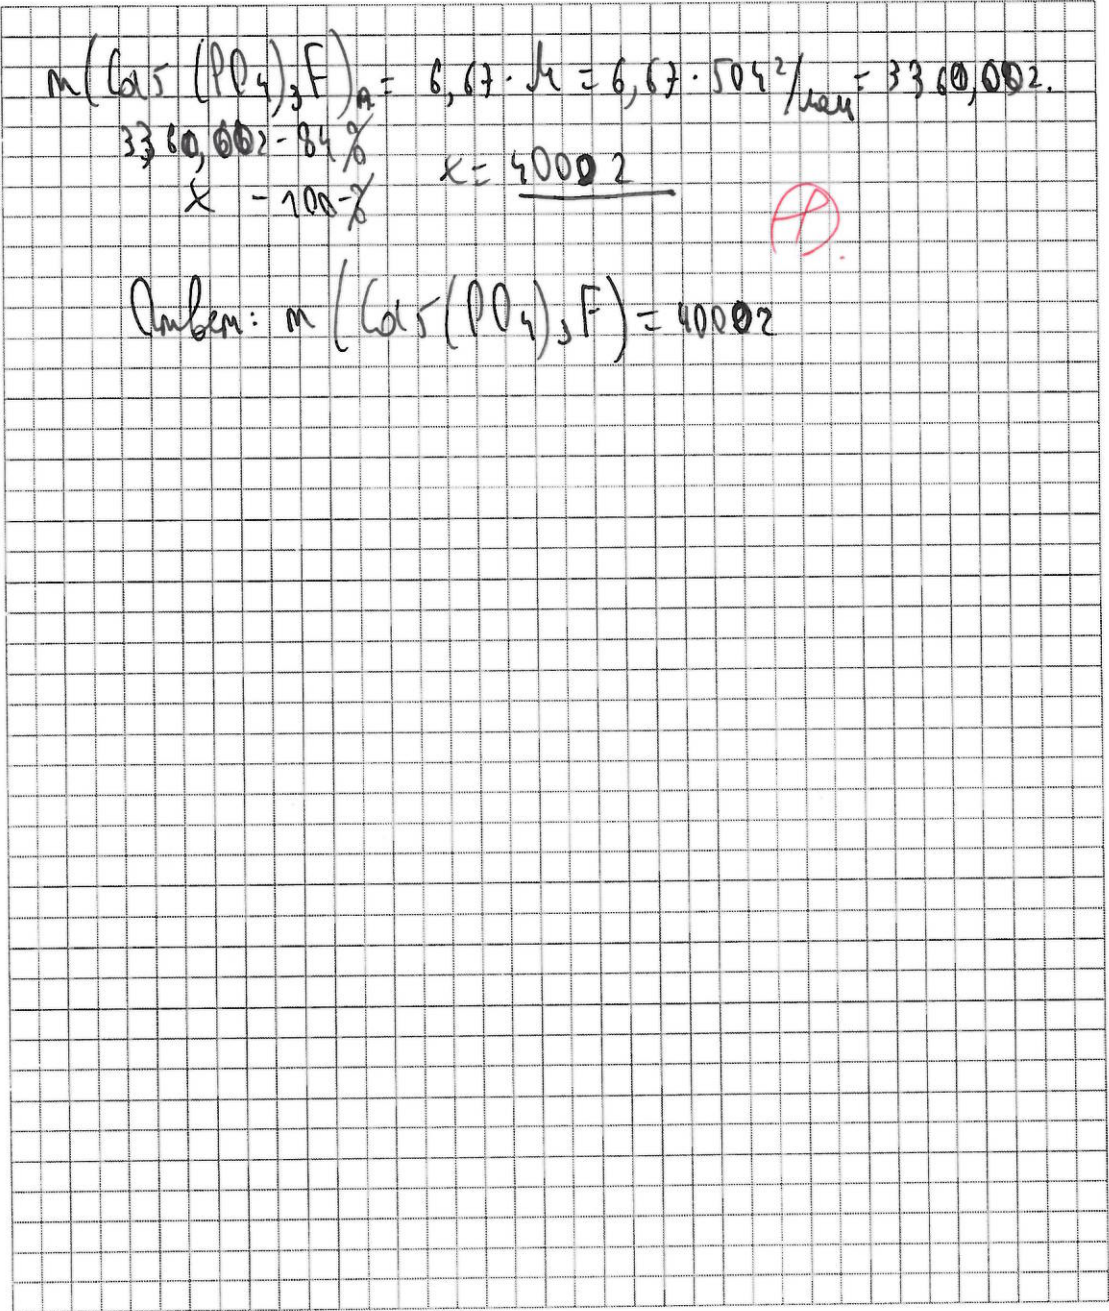 m(Ca5(PO4)3F)п = 6,67 · M = 6,67 · 504 г/моль = 3360,00г.
3360,00г - 84%
x = 4000г
x - 100%
Ответ: m(Ca5(PO4)3F) = 4000г